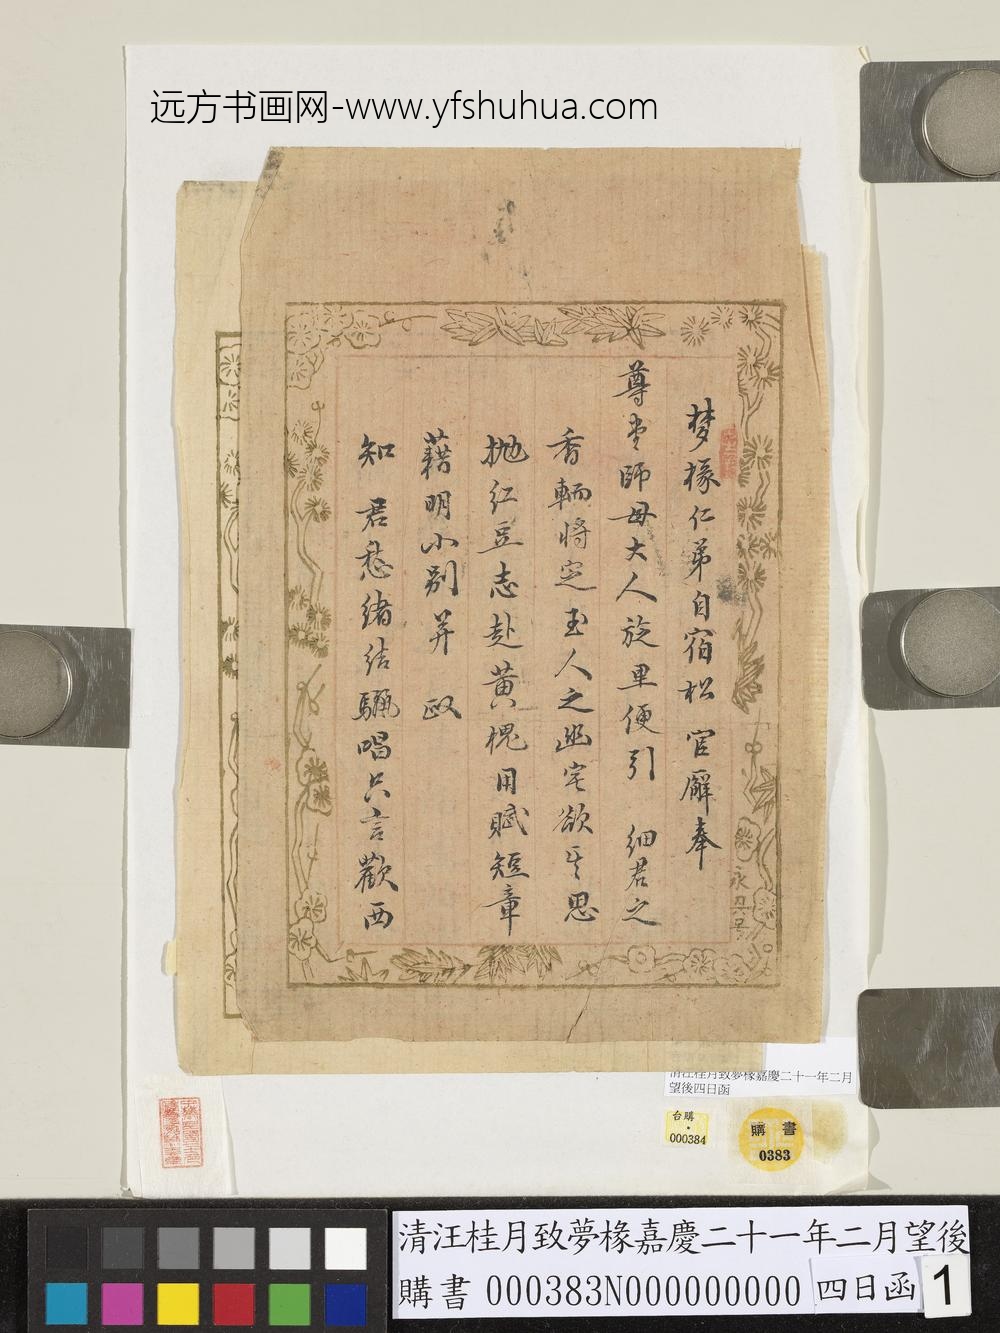 远方书画网-www.yfshuhua.com
梦椽仁弟自宿松 官廨奉
尊堂師母大人旋里便引 细君之
香輀將定玉人之幽宅欲 思
抛红豆志赴黄槐用賦短章
藉明小别并 政
知 君愁绪结驪唱只言歡西
永吳号
清汪桂月致夢椽嘉慶二十一年二月
望後四日函
台購
000384
購書
0383
清汪桂月致夢椽嘉慶二十一年二月望後
購書 000383N000000000 四日函 1